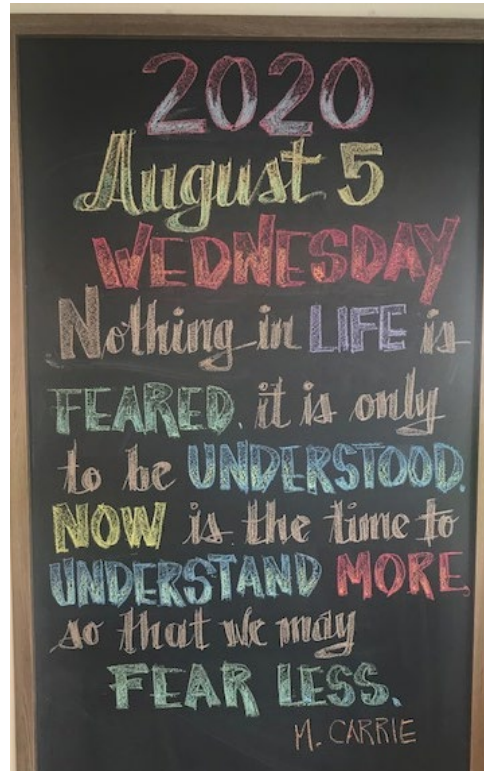 2020
August 5
WEDNESDAY
Nothing in LIFE is
FEARED. it is only
to be UNDERSTOOD.
NOW is the time to
UNDERSTAND MORE,
so that we may
FEAR LESS.
M. CARRIE